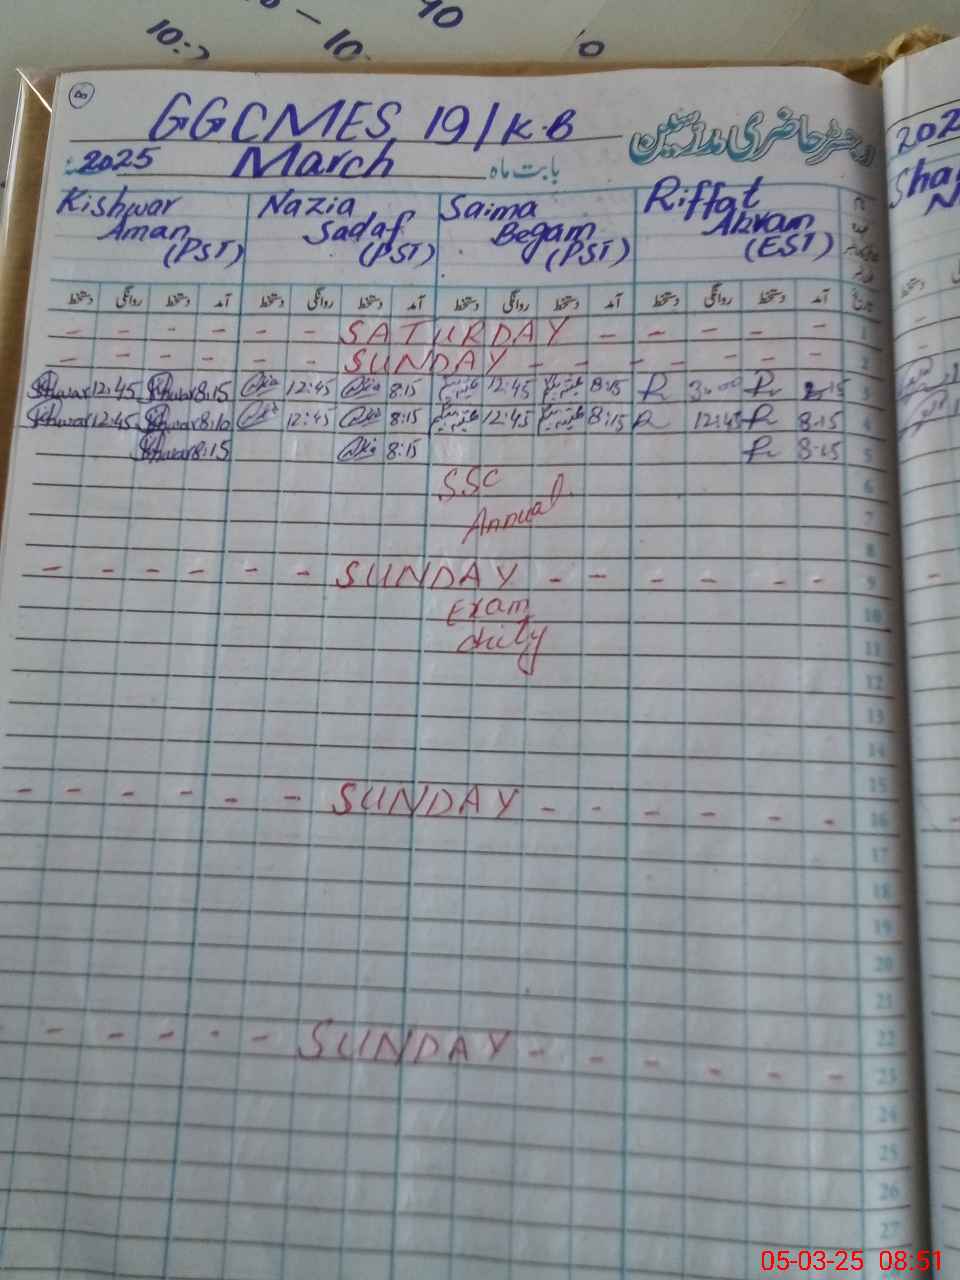 10:
- 10
40
GGCMES 19/K.B
رجسٹر حاضری مدرسین
2025 March بابت ماہ
Kishwar Aman (PST)
Nazia Sadaf (PST)
Saima Begam (PST)
Riffat Akram (EST)
دستخط روانگی دستخط آمد دستخط روانگی دستخط آمد دستخط روانگی دستخط آمد دستخط روانگی دستخط آمد تاریخ
- - - - - - SATURDAY - - - - - 1
- - - - - - SUNDAY - - - - - - 2
Kishwar 12:45 Kishwar 8:15 12:45 8:15 12:45 8:15 R 3:00 R 8:15 3
Kishwar 12:45 Kishwar 8:10 12:45 8:15 12:45 8:15 R 12:45 R 8:15 4
Kishwar 8:15 8:15 R 8:15 5
SSC 6
Annual 7
8
- - - - - - SUNDAY - - - - - - 9
Exam 10
duty 11
12
13
14
15
- - - - - - SUNDAY - - - - - - 16
17
18
19
20
21
22
- - - - - - SUNDAY - - - - - - 23
24
25
26
27
202
Sha
05-03-25 08:51